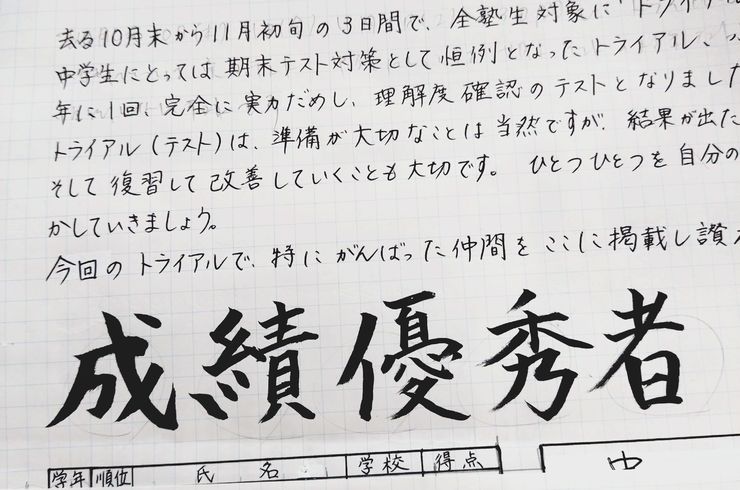 去る10月末から11月初旬の3日間で、全塾生対象に「トライアル
中学生にとっては期末テスト対策として恒例となったトライアル、
年に1回、完全に実力だめし、理解度確認のテストとなりました
トライアル(テスト)は、準備が大切なことは当然ですが、結果が出た
そして復習して改善していくことも大切です。ひとつひとつを自分の
かしていきましょう。
今回のトライアルで、特にがんばった仲間をここに掲載し讃え
成績優秀者
学年 順位 氏名 学校 得点